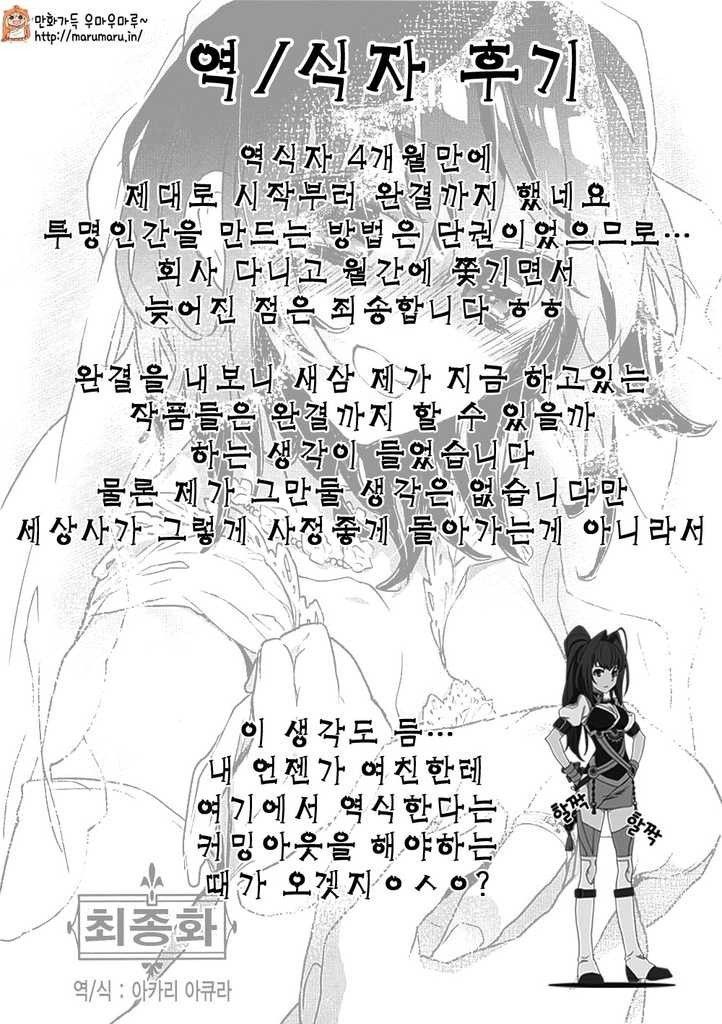 만화가득 우마우마루~
http://marumaru.in/
역/식자 후기
역식자 4개월만에
제대로 시작부터 완결까지 했네요
투명인간을 만드는 방법은 단권이었으므로...
회사 다니고 월간에 쫓기면서
늦어진 점은 죄송합니다 ㅎㅎ
완결을 내보니 새삼 제가 지금 하고있는
작품들은 완결까지 할 수 있을까
하는 생각이 들었습니다
물론 제가 그만둘 생각은 없습니다만
세상사가 그렇게 사정좋게 돌아가는게 아니라서
이 생각도 듬...
내 언젠가 여친한테
여기에서 역식한다는
커밍아웃을 해야하는
때가 오겟지ㅇㅅㅇ?
할짝
할짝
최종화
역/식 : 아카리 아큐라